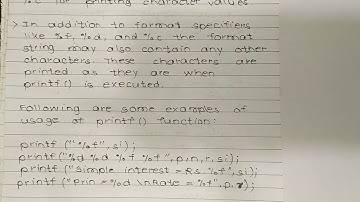 %c for printing character values.
> In addition to format specifiers
like %f, %d, and %c the format
string may also contain any other
characters. These characters are
printed as they are when
printf() is executed.
Following are some examples of
usage of printf() function:
printf("%f", si);
printf("%d %d %f %f", p,n,r,si);
printf("Simple interest = Rs %f", si);
printf("Prin = %d \nRate = %f", p,r);